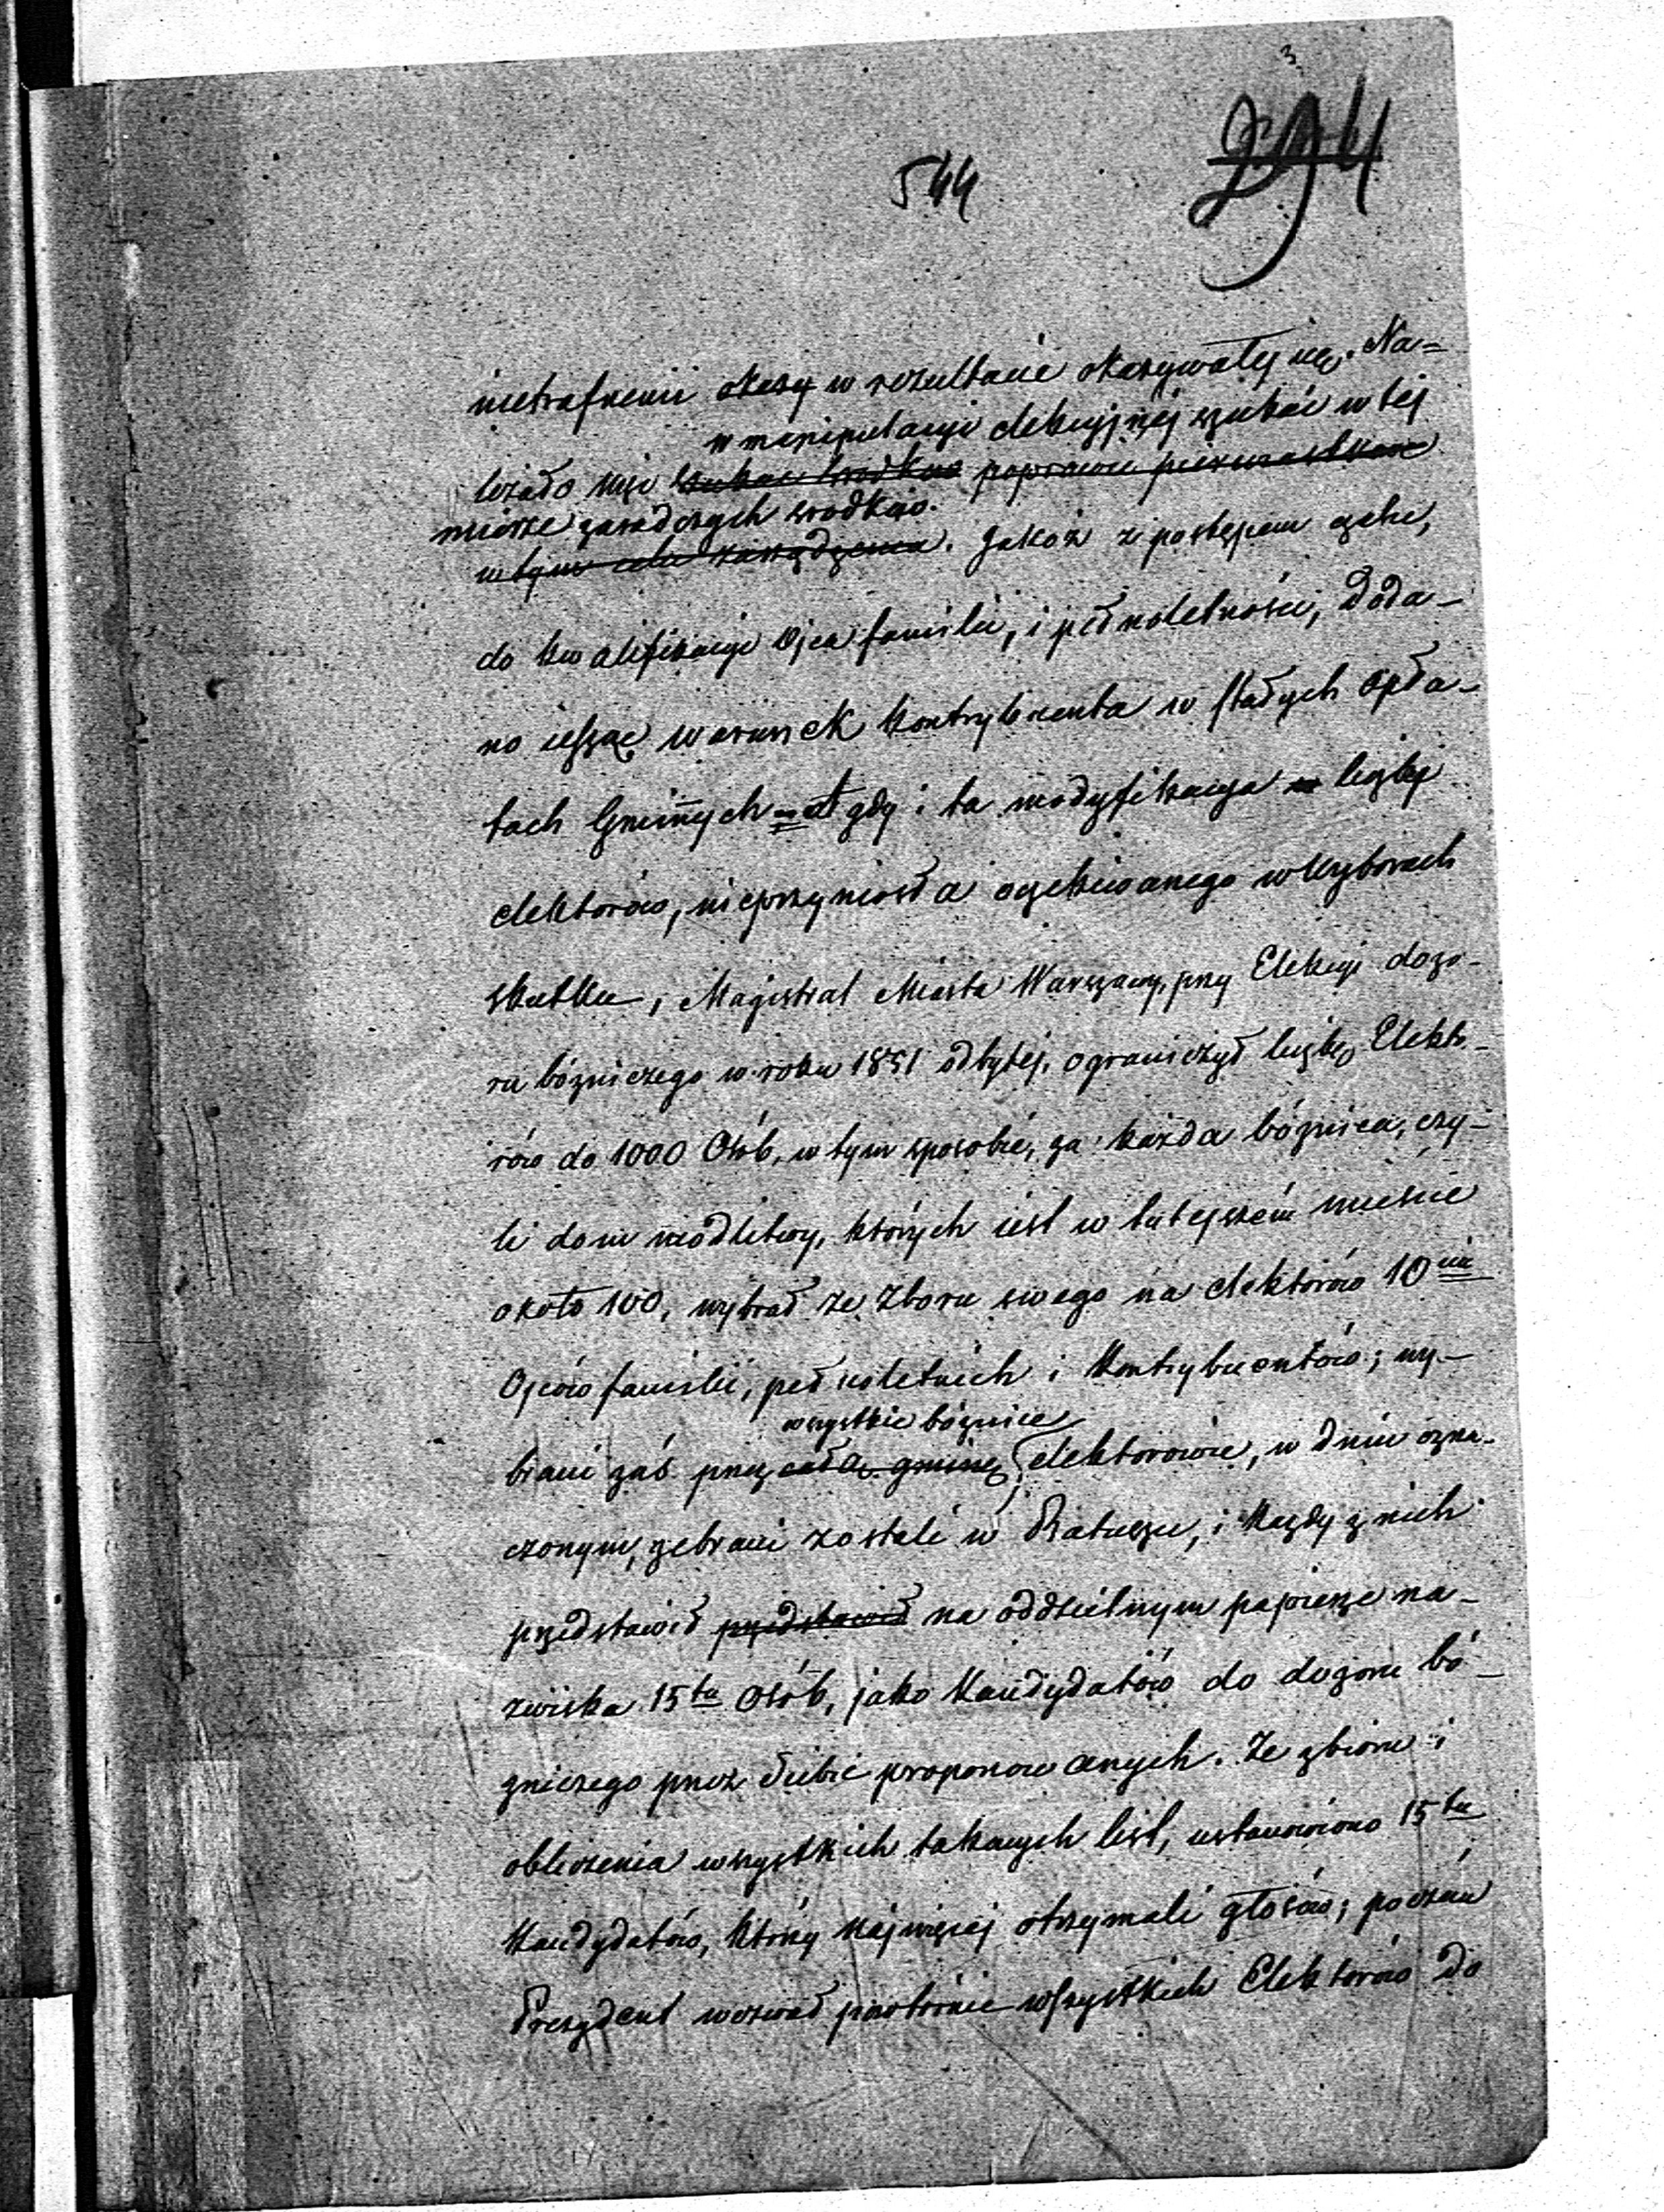 3
544
294
nietrafnemi okazy w rezultacie okazywały się. Na=
w manipulacyi elekcyjnéj szukać w téj
leżało więc szukać srodków poprawić pierwiastkowe
mierze zaradczych srodków.
w tym celu zarządzenia. Jakoż z postępem czasu,
do kwalifikacyi Ojca familii, i pełnoletności, Doda-
no ieszcze warunek kontrybuenta w stałych opła-
tach Gminnych – at gdy i ta modyfikacya liczby
elektorów, nieprzyniosła oczekiwanego w wyborach
skutku, Magistrat Miasta Warszawy, przy Elekcyi dozo-
ru bózniczego w roku 1851 odbytéj, ograniczył liczbę Elekto-
rów do 1000 Osób, w tym sposobie, za każda bóznica, czy-
li dom modlitwy, których iest w tutejszém mieście
około 100, wybrał ze Zboru swego na elektorów 10ciu
Ojców familii, pełnoletnich i Kontrybuentów; wy-
wszystkie bóznice
brani zaś przez całą gminę, elektorowie, w dniu ozna-
czonym, zebrani zostali w Ratuszu, i każdy z nich
przedstawił przedstawił na oddzielnym papierze na-
zwiska 15tu Osób, jako Kandydatów do dozoru bó-
zniczego przez siebie proponowanych. Ze zbioru i
obliczenia wszystkich takowych list, ustanowiono 15tu
Kandydatów, którzy najwięcéj otrzymali głosów; poczém
Prezydent wezwał powtórnie wszystkich Elektorów do